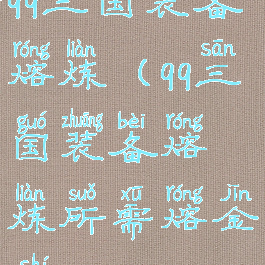 99三国装备
róng liàn sān
熔炼（99三
guó zhuāng bèi róng
国装备熔
liàn suǒ xū róng jīn
炼所需熔金
shí